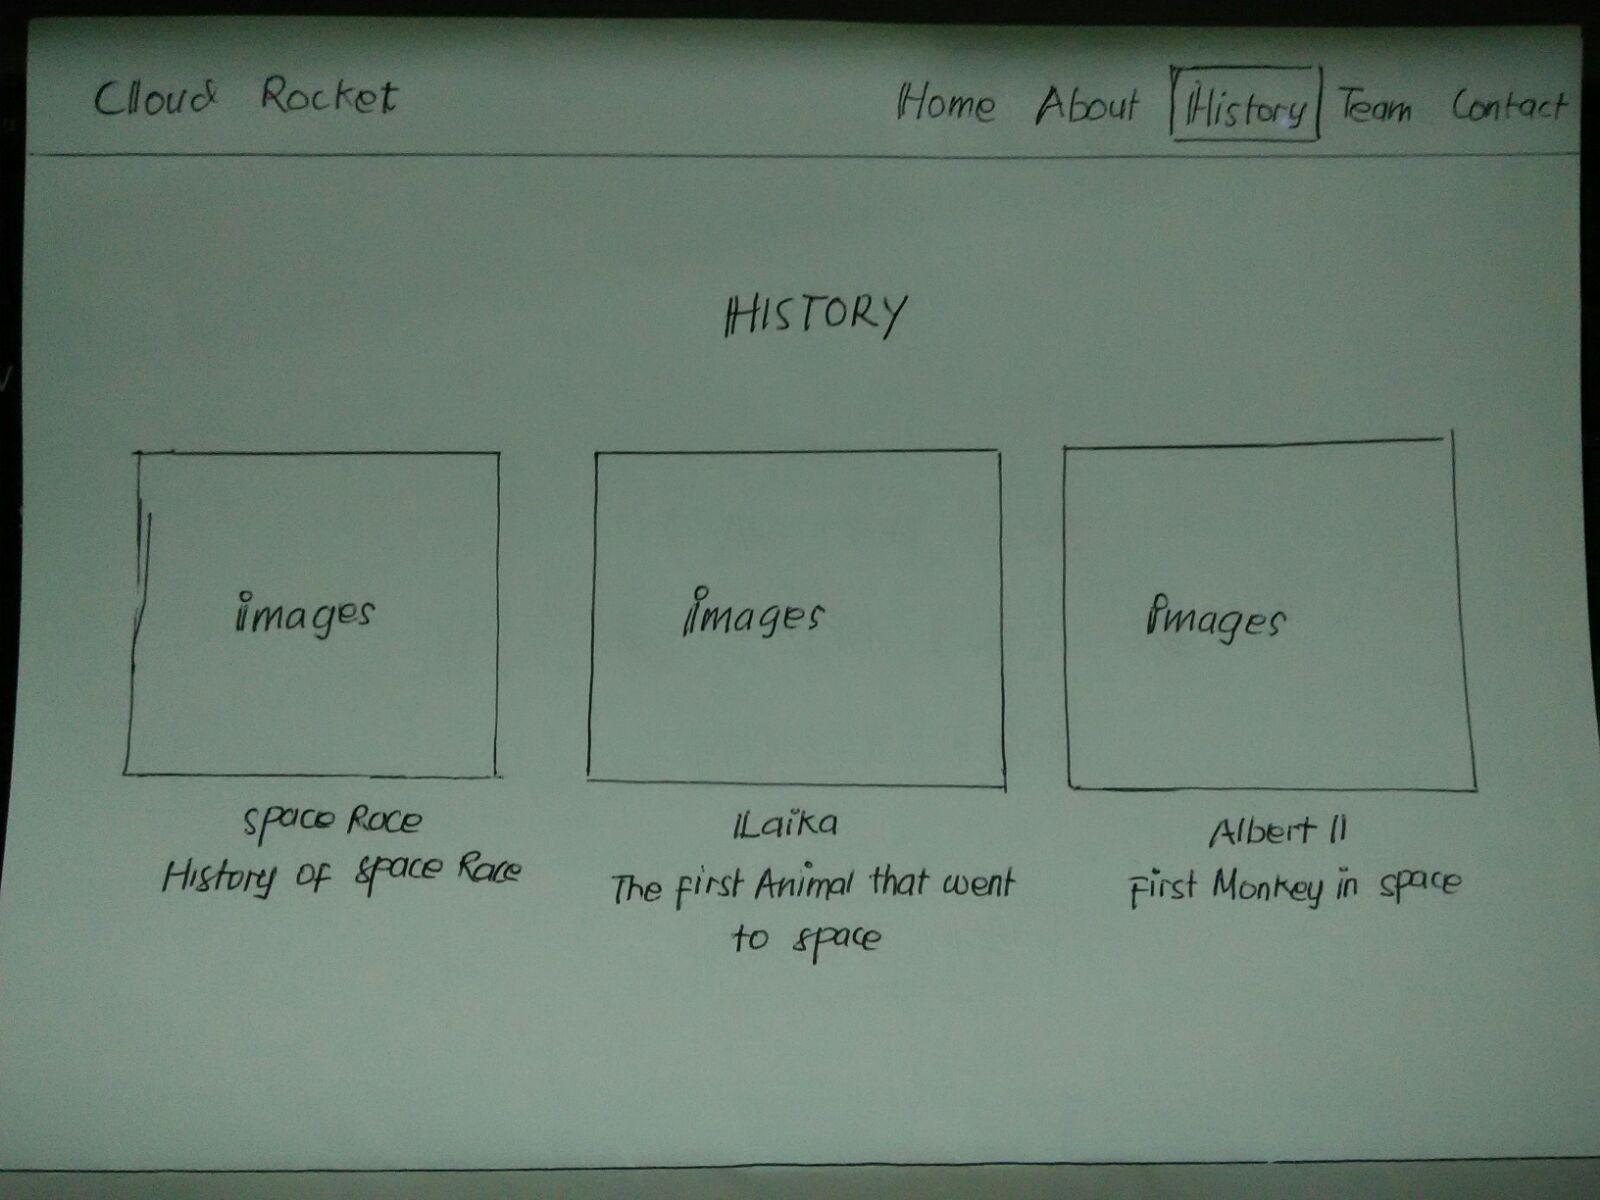 Cloud Rocket
Home About History Team Contact
HISTORY
images
images
images
space Race
History of space Race
Laika
The first Animal that went
to space
Albert II
First Monkey in space